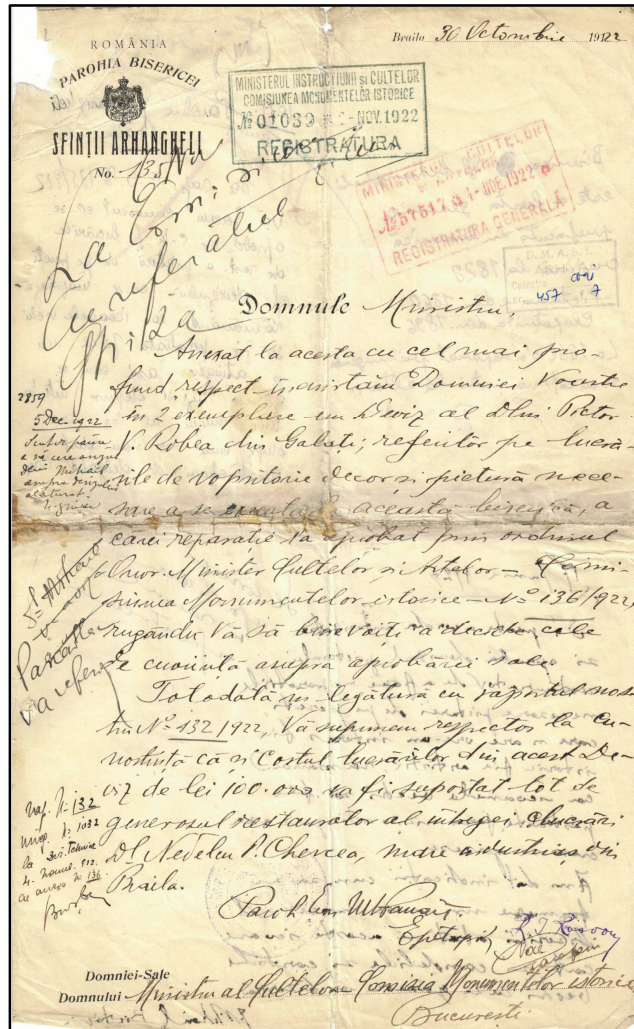 ROMÂNIA
PAROHIA BISERICEI
SFINȚII ARHANGHELI
No. 135
Braila 30 Octombrie 1922
MINISTERUL INSTRUCȚIUNII și CULTELOR
COMISIUNEA MONUMENTELOR ISTORICE
No 01039 * 2-NOV. 1922
REGISTRATURA
MINISTERUL CULTELOR
No 57517 * 1-DOE. 1922
REGISTRATURA GENERALĂ
D. M. A. S. I.
Colecția
457
7
La Comisiune
cu referatul
Domnule Ministru,
Anexat la acesta cu cel mai pro-
fund respect înaintam Domniei Voastre
in 2 exemplare un Deviz al Dlui Pictor
V. Robea din Galați, referitor pe lucră-
rile de vopsitorie decor si pictură nece-
sare a se executa la această biserică, a
carei reparație s'a aprobat prin ordinul
Onor. Minister Cultelor și Artelor – Comi-
siunea Monumentelor istorice – No 136/1922,
rugându Vă să binevoiți a decide cele
de cuviință asupra aprobării sale.
Totodată in legătură cu raportul nos-
tru No 132/1922, Vă supunem respectos la cu-
noștință că și costul lucrărilor din acest De-
viz de lei 100.000 va fi suportat tot de
generosul restaurator al intregei lucrări
Dl Nedelcu P. Chercea, mare industriaș din
Braila.
2859
5 Dec. 1922
Dlui Mihail
asupra devizului
alăturat
Dl Mihail
va referi
rap. No 132
la Ser. Tehnic
cu anexa No 136
Paroh
Epitropi,
Domniei-Sale
Domnului Ministru al Cultelor Comisia Monumentelor istorice
Bucuresti